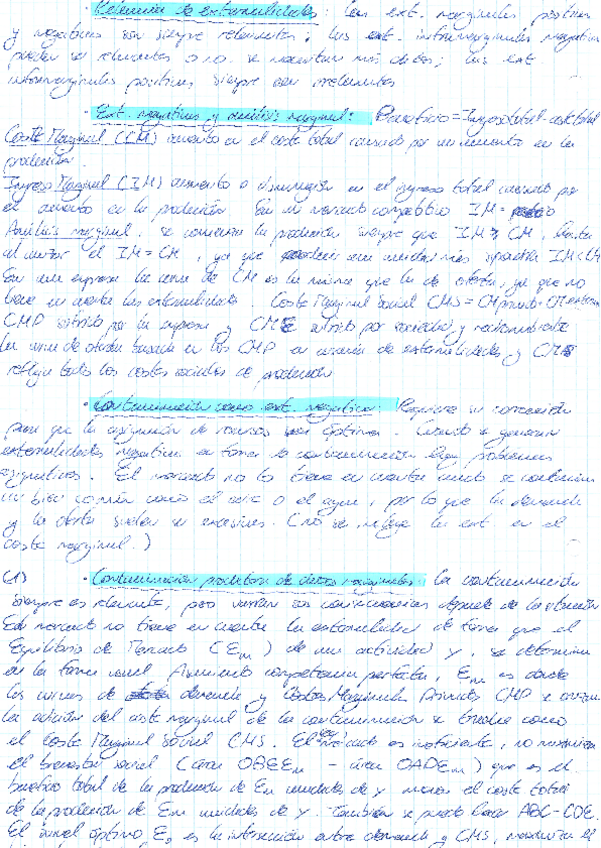 · Relevancia de externalidades: Las ext. marginales positivas
y negativas son siempre relevantes; las ext. intramarginales negativas
pueden ser relevantes o no se necesitan más datos; las ext.
intramarginales positivas siempre son irrelevantes
· Ext. negativas y análisis marginal: Beneficio = Ingreso total - coste total
Coste Marginal (CM) aumento en el coste total causado por un aumento en la
producción.
Ingreso Marginal (IM) aumento o disminución en el ingreso total causado por
el aumento en la producción. En un mercado competitivo IM =
Análisis marginal, se aumenta la producción siempre que IM > CM, hasta
el punto el IM = CM, ya que producir una unidad más IM < CM
En una empresa la curva de CM es la misma que la de oferta, ya que no
tiene en cuenta las externalidades. Coste Marginal Social CMS = CM privado + CM externo
CMP sufrido por la empresa y CME sufrido por sociedad y
La curva de oferta basada en los CMP en ausencia de externalidades y CMS
refleja todos los costes sociales de producción
· Contaminación como ext. negativa: Requiere su corrección
para que la asignación de recursos sea óptima. Cuando se generan
externalidades negativas en forma de contaminación hay problemas
asignativos. El mercado no lo tiene en cuenta cuando se contamina
un bien común como el aire o el agua, por lo que la demanda
y la oferta suelen ser excesivas. (no se refleja la ext en el
coste marginal.)
(1) · Contaminación productora de daños marginales: La contaminación
siempre es relevante, pero varían sus consecuencias depende de la situación
Este mercado no tiene en cuenta la externalidad de forma que el
Equilibrio de Mercado (Em) de una actividad y, se determina
en la forma usual. Asumiendo competencia perfecta, Em es donde
las curvas de demanda y Costes Marginales Privados CMP se cruzan
La adición del coste marginal de la contaminación se traduce como
el Coste Marginal Social CMS. El mercado es ineficiente, no maximiza
el bienestar social (área OBEEm - área OADEm) que es el
beneficio total de la producción de Em unidades de y menos el coste total
de la producción de Em unidades de y. También se puede hacer ABC - CDE.
El nivel óptimo E0 es la intersección entre demanda y CMS, maximiza el